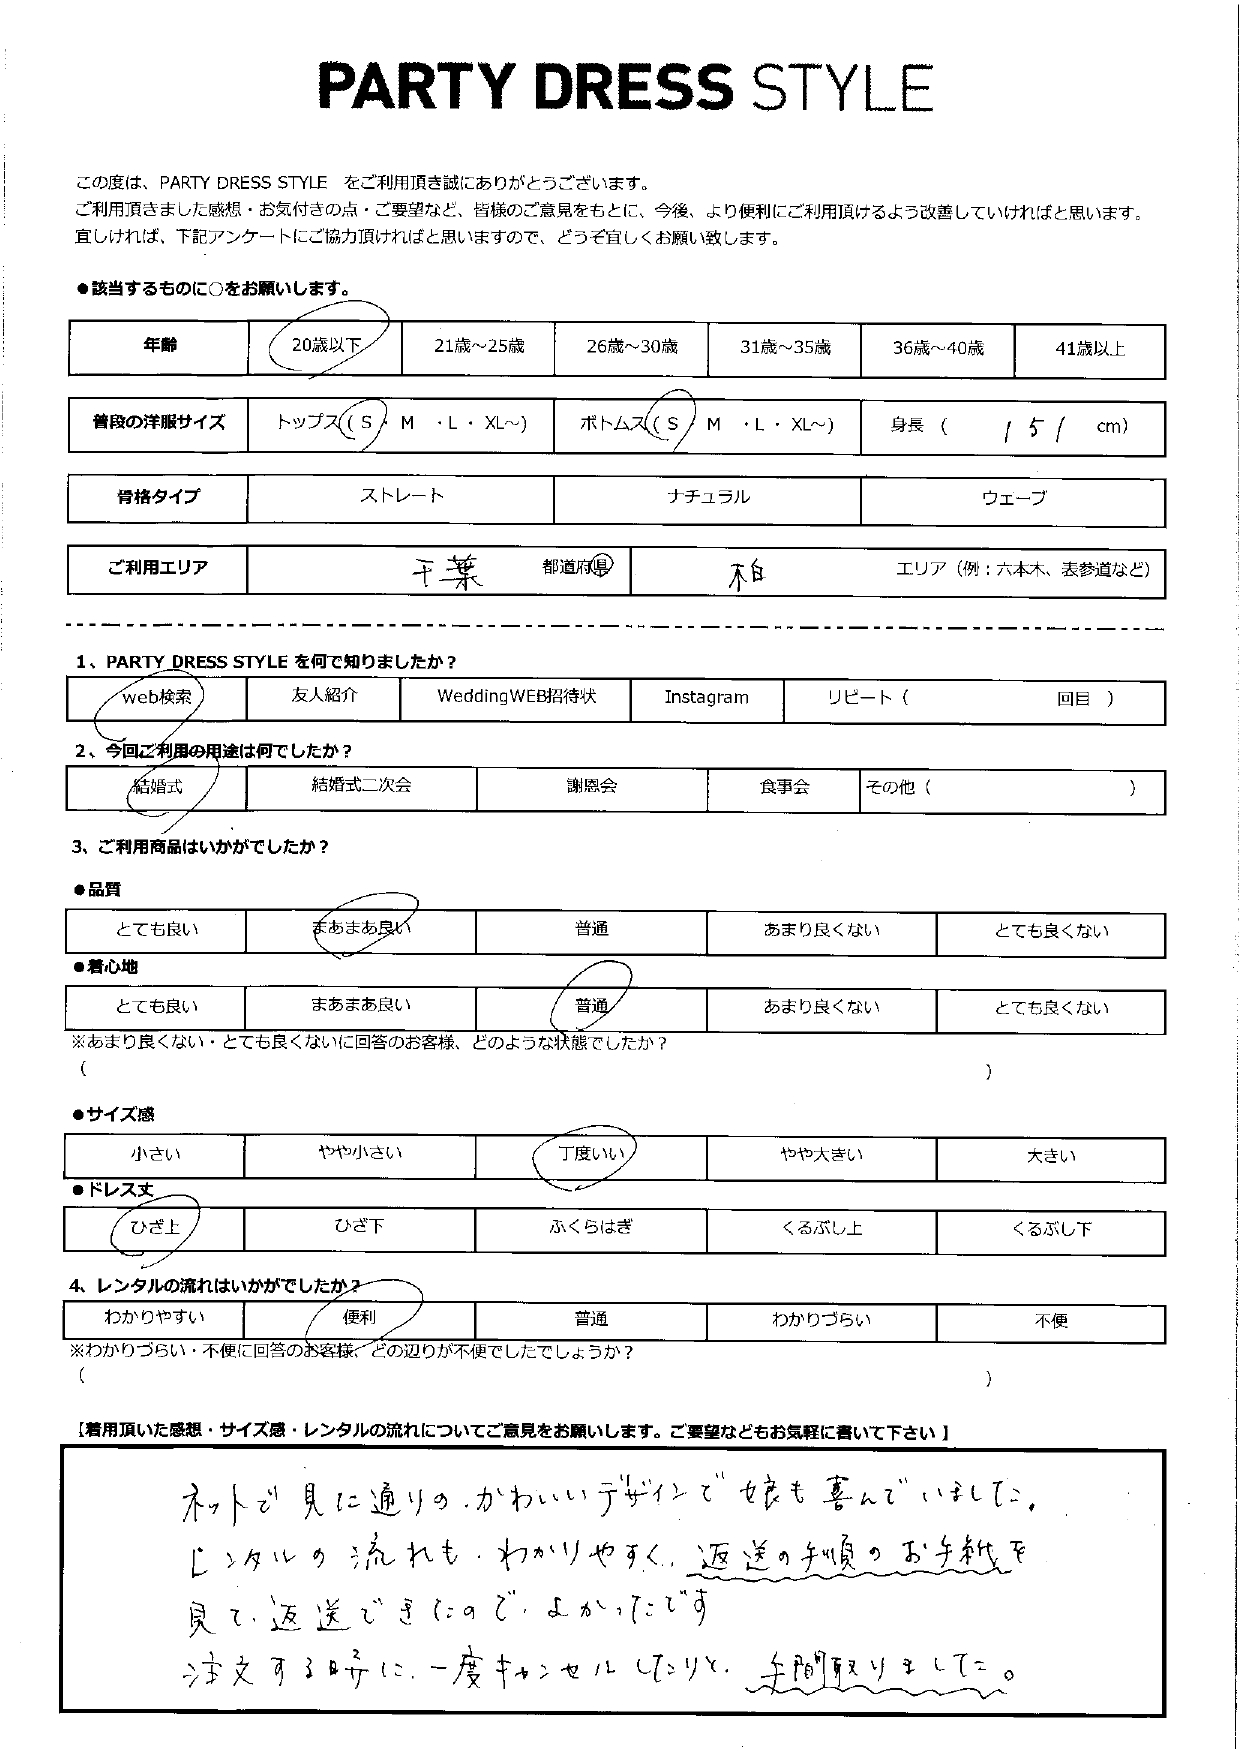 PARTY DRESS STYLE
この度は、PARTY DRESS STYLE をご利用頂き誠にありがとうございます。
ご利用頂きました感想・お気付きの点・ご要望など、皆様のご意見をもとに、今後、より便利にご利用頂けるよう改善していければと思います。
宜しければ、下記アンケートにご協力頂ければと思いますので、どうぞ宜しくお願い致します。
●該当するものに○をお願いします。
年齢 20歳以下 21歳～25歳 26歳～30歳 31歳～35歳 36歳～40歳 41歳以上
普段の洋服サイズ トップス( S ・ M ・L ・ XL～) ボトムス( S ・ M ・L ・ XL～) 身長 ( 151 cm)
骨格タイプ ストレート ナチュラル ウェーブ
ご利用エリア 千葉 都道府県 柏 エリア（例：六本木、表参道など）
1、PARTY DRESS STYLE を何で知りましたか？
web検索 友人紹介 WeddingWEB招待状 Instagram リピート（ 回目 ）
2、今回ご利用の用途は何でしたか？
結婚式 結婚式二次会 謝恩会 食事会 その他（ ）
3、ご利用商品はいかがでしたか？
●品質
とても良い まあまあ良い 普通 あまり良くない とても良くない
●着心地
とても良い まあまあ良い 普通 あまり良くない とても良くない
※あまり良くない・とても良くないに回答のお客様、どのような状態でしたか？
（ ）
●サイズ感
小さい やや小さい 丁度いい やや大きい 大きい
●ドレス丈
ひざ上 ひざ下 ふくらはぎ くるぶし上 くるぶし下
4、レンタルの流れはいかがでしたか？
わかりやすい 便利 普通 わかりづらい 不便
※わかりづらい・不便に回答のお客様、どの辺りが不便でしたでしょうか？
（ ）
【着用頂いた感想・サイズ感・レンタルの流れについてご意見をお願いします。ご要望などもお気軽に書いて下さい 】
ネットで見に通りの、かわいいデザインで娘も喜んでいました。
レンタルの流れも、わかりやすく、返送の手順のお手紙を
見て、返送できたので、よかったです
注文する時に、一度キャンセルしたりと、手間取りました。